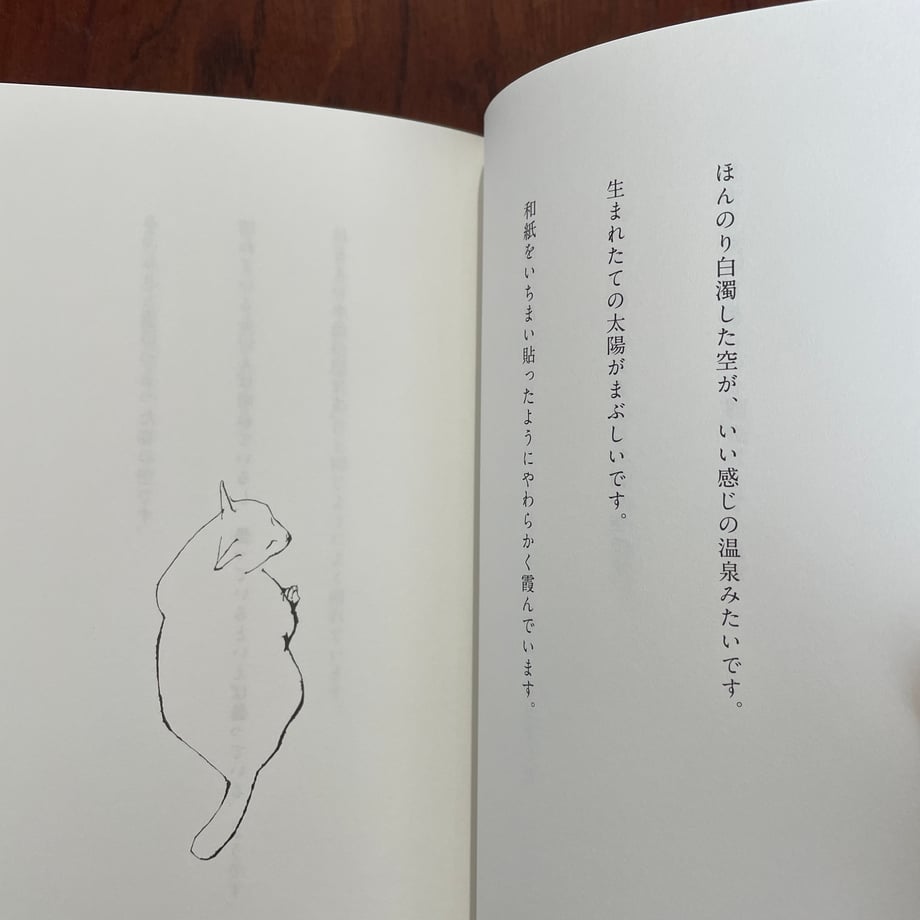 ほんのり白濁した空が、いい感じの温泉みたいです。
生まれたての太陽がまぶしいです。
和紙をいちまい貼ったようにやわらかく霞んでいます。